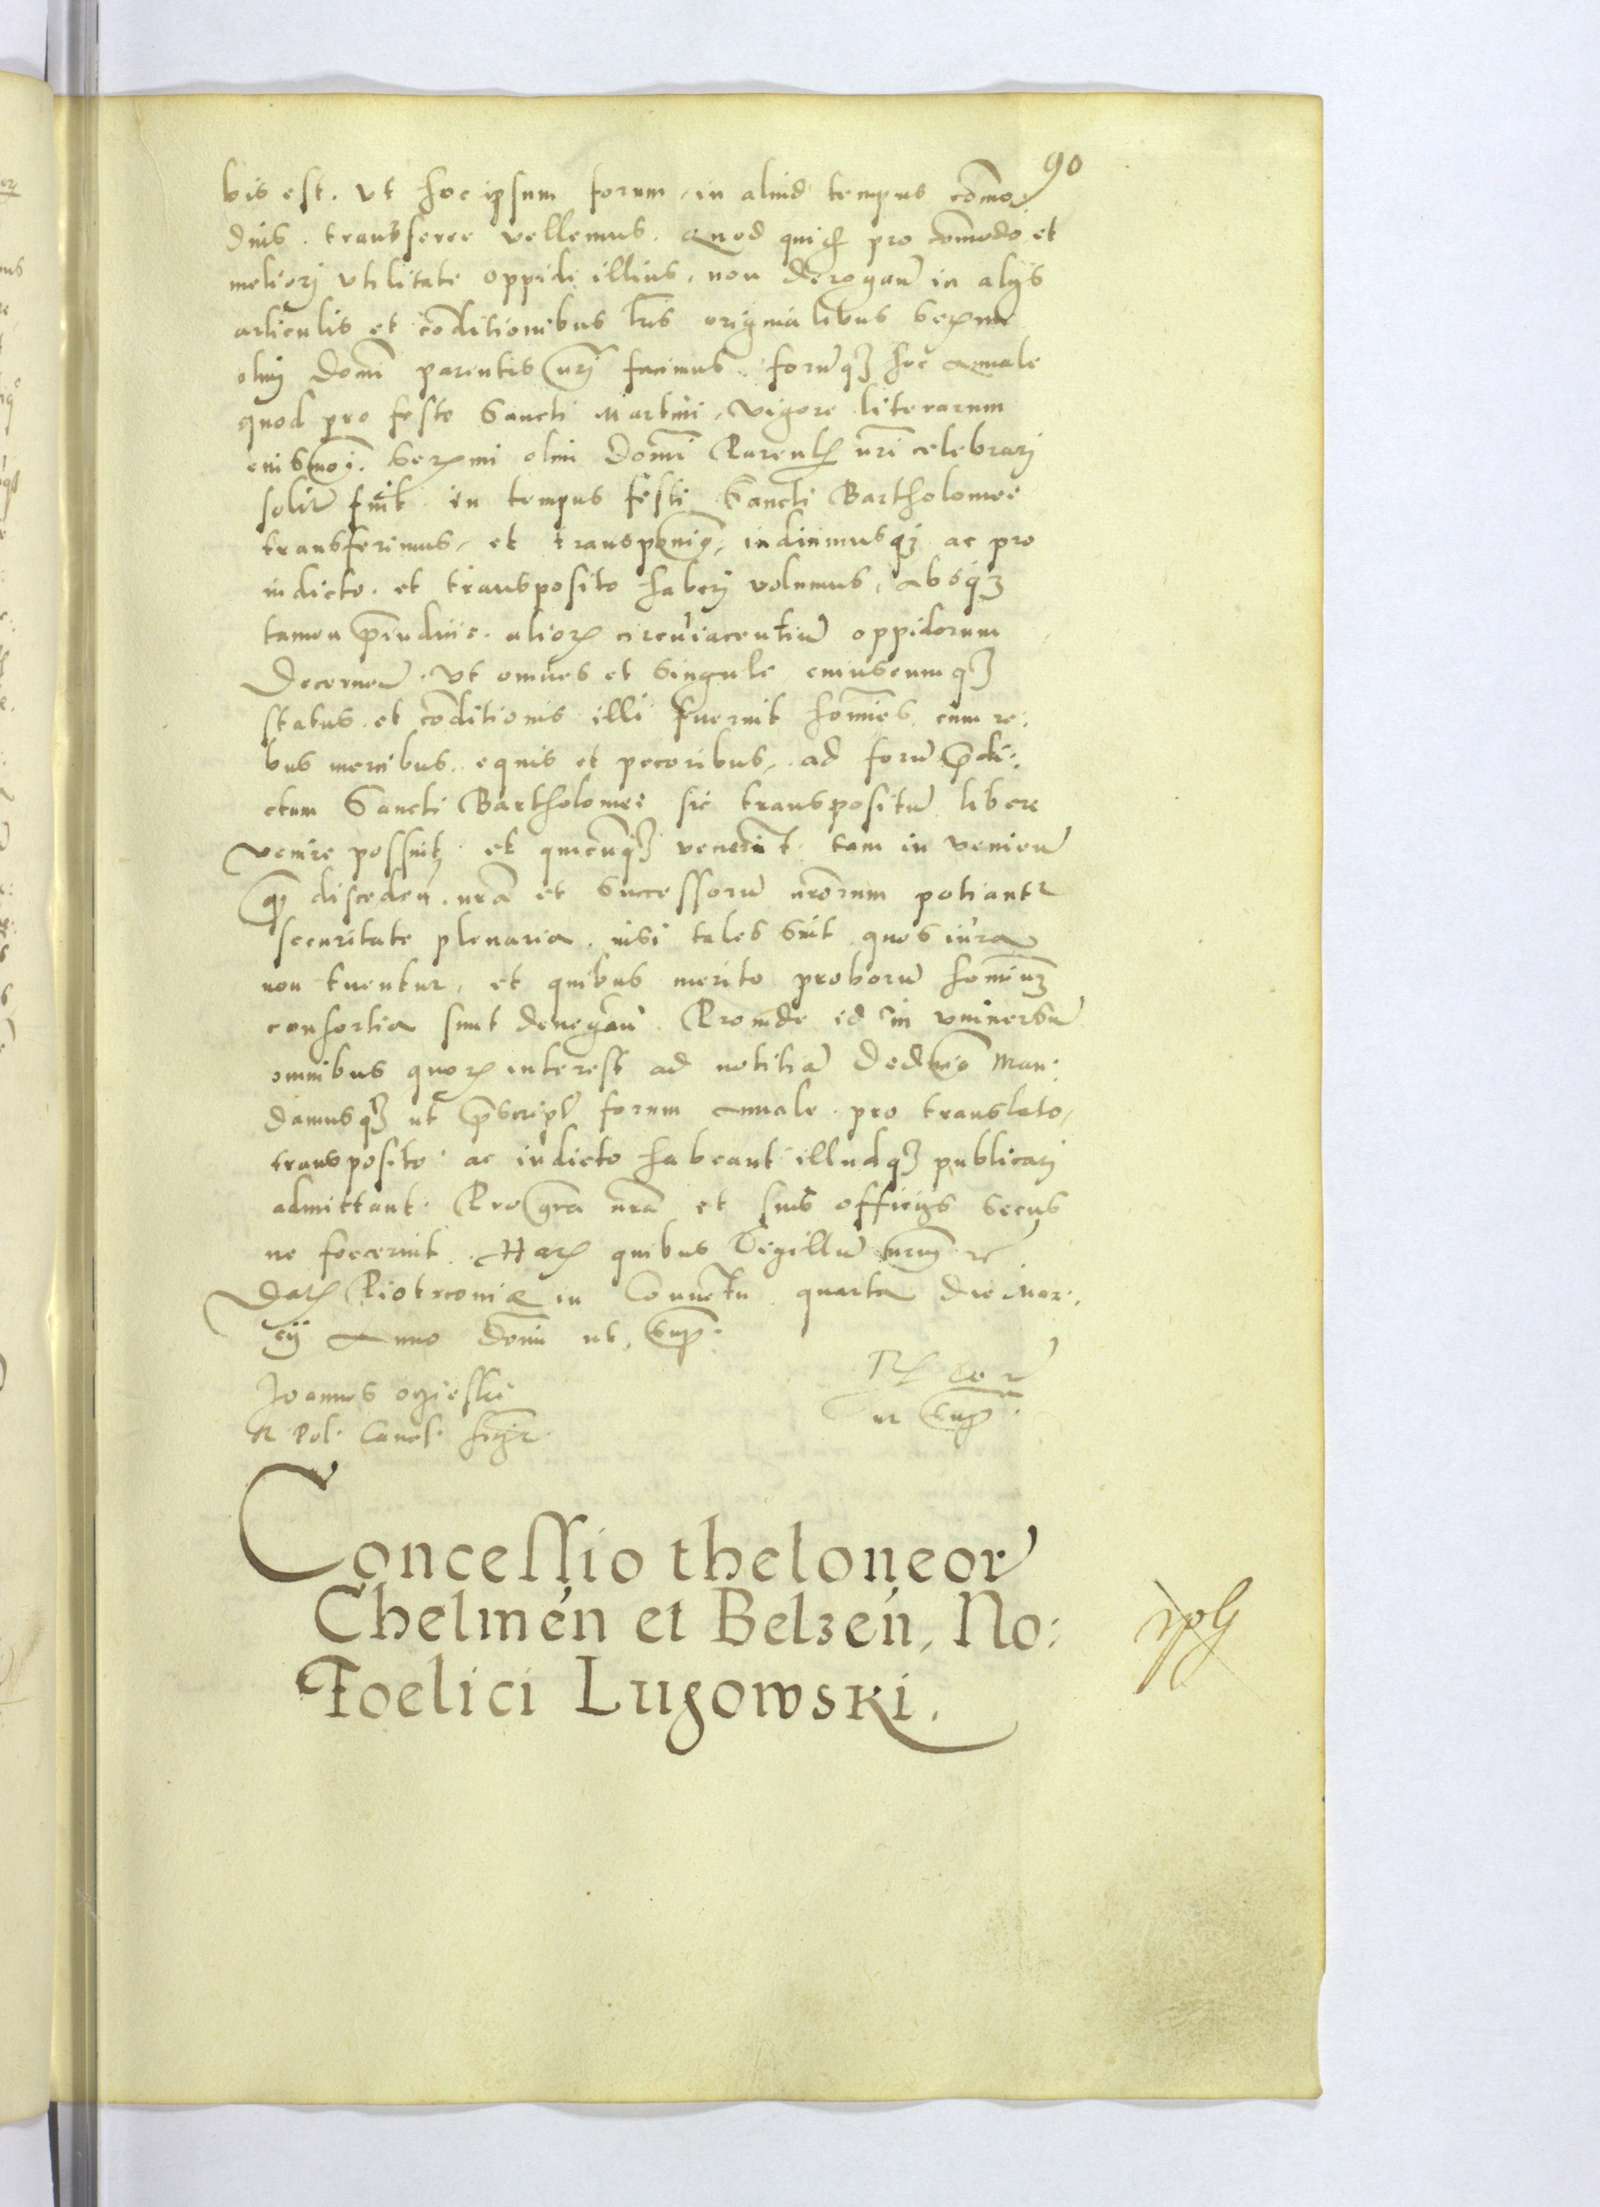 90
bis est. Vt hoc ipsum forum in aliud tempus com̃o
dius transferre vellemus. Quod quidē pro com̃odo et
meliorj vtilitate oppidi illius, non derogañ in alijs
articulis et cõditionibus lr̃is originalibus Ser͞mi
olim Dom̃i parentis nr̃j facimus. forũqȝ hoc annale
quod pro festo Sancti Martini, vigore literarum
eiusmõi Ser͞mi olim Dom̃i Parentis nr̃i celebrarj
solitũ fuit in tempus festi Sancti Bartholomei
transferimus, et transponim9, indicimusqȝ ac pro
indicto et transposito haberj volumus, absqȝ
tamen p̃iudicio alior͞ circũiacentiũ oppidorum
Decerneñ. Vt omnes et singule cuiuscumqȝ
status et cõditionis illi fuerint hom̃ines cum re:
bus mercibus equis et pecoribus, ad forũ p̃di:
ctum Sancti Bartholomei sic transpositũ libere
venire possint et quicũqȝ venerint tam in venieñ
qȝ discedeñ. nr̃a et Successorũ nr̃orum potiantr
securitate plenaria nisi tales sint quos iura
non tuentur, et quibus merito proborũ hom̃inũ
consortia sunt denegañ. Proinde id in vniuersũ
omnibus quor͞ interest ad notitiã deducim9 Man:
damusqȝ ut p̃script̃ forum annale pro translato,
transposito ac indicto habeant illudqȝ publicarj
admittant. Pro gr̃a nr̃a et suis officijs secus
ne foecerint. Har͞ quibus Sigillũ nr̃um
Dat͞ Piotrcoviæ in Conuẽtu quarta die Mar:
cij Anno Dom̃i ut sup̃.
Joannes ogieski
R Pol. Canc̃l. s̃s̃t.
ut sup̃.
Concessio theloneor͞
Chelmeń et Belzeń, No:
Foelici Lugowski.